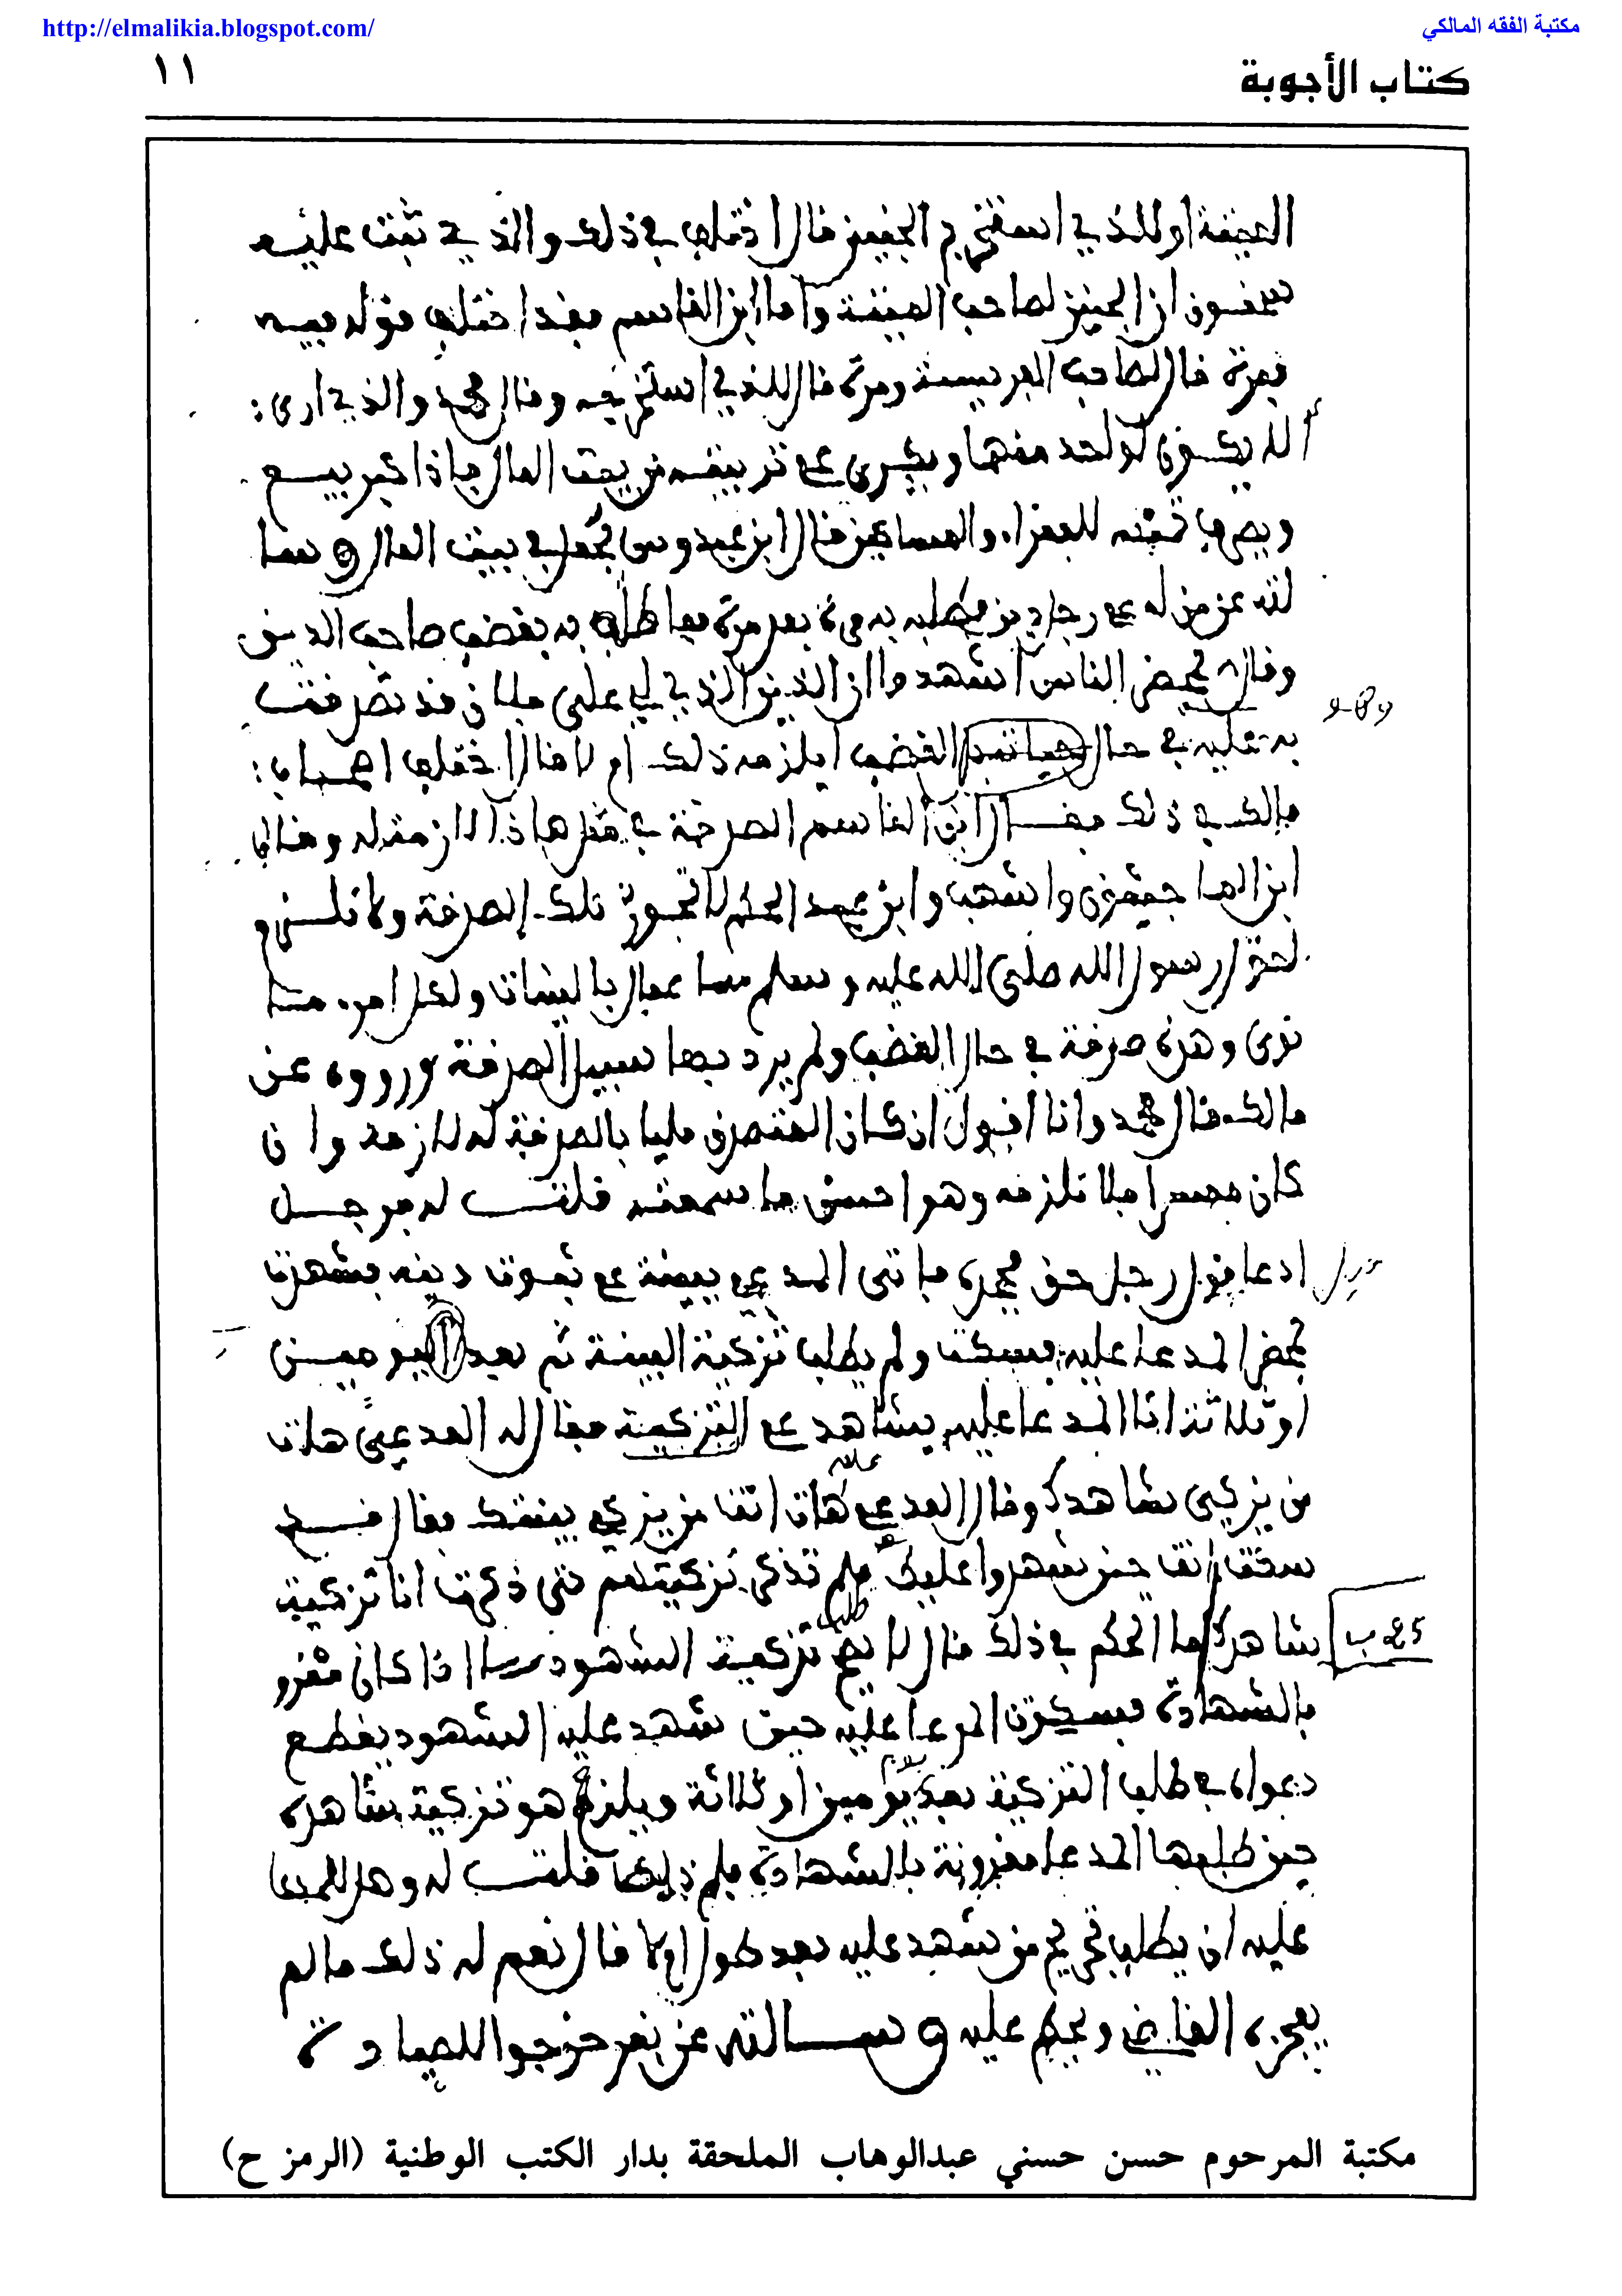 http://elmalikia.blogspot.com/ مكتبة الفقه المالكي
كتاب الأجوبة ١١
او للذي استخرج الجنين قال اختلف في ذلك والذي ثبت عليه
سحنون ان الجنين لصاحب الميتة واما ابن القاسم فقد اختلف قوله فيه
فمرة قال لصاحب الفريسة ومرة قال للذي استخرجه وقال محمد والذي ارى
انه لا يكون لواحد منهما ويكرى على تربيته من بيت المال فاذا كبر بيع
ويصرف ثمنه للفقراء والمساكين قال ابن عبدوس يجعل في بيت المال وسا
لته عن من له على رجل دين فطلبه به مرة بعد مرة فماطله به فغضب صاحب الدين
وقال لبعض الناس اشهدوا ان الدين الذي لي على فلان قد تصرفت
به عليه في حال الغضب ايلزمه ذلك ام لا قال اختلف اصحاب
مالك في ذلك فقال ابن القاسم الصدقة في مثل هاذا لازمة له وقال
ابن الماجشون واشهب وابن عبد الحكم لا تجوز تلك الصدقة ولا تلزم
لقول رسول الله صلى الله عليه وسلم انما الاعمال بالنيات ولكل امرء ما
نوى وهذه صدقة في حال الغضب ولم يرد بها سبيل الصدقة ورووه عن
مالك قال محمد وانا اقول ان كان المتصدق مليا فالصدقة له لازمة وان
كان معسرا فلا تلزمه وهو احسن ما سمعته قلت له فرجل
ادعا قبل رجل حق فجحده فاتى المدعي ببينة على ثبوت دينه فشهدت
بمحضر المدعا عليه فسكت ولم يطلب تزكية البينة ثم بعد اليومين
او ثلاثة اتا المدعا عليه بشاهد على التزكية فقال له المدعي هات
من يزكي شاهدك وقال المدعى عليه هات انت من يزكي بينتك فقال قد
سكت انت حين شهدوا عليك فلم تذكر تزكيتهم حتى ذكرت انا تزكية
شاهدك ما الحكم في ذلك قال لا يصح طلب تزكية الشهود الا اذا كان مقرو
بالشهادة فسكوت المدعا عليه حين شهد عليه الشهود يقطع
دعواه في طلب التزكية بعد يومين او ثلاثة ويلزم هو تزكية شاهده
حين طلبها المدعا مقرونة بالشهادة قلت له وهل للمدعا
عليه ان يطلب تجريح من شهد عليه بعد طول ام لا قال نعم له ذلك ما لم
يعجزه القاضي ويحكم عليه وسالته عن نفر خرجوا للصيادة
25 ب
مكتبة المرحوم حسن حسني عبدالوهاب الملحقة بدار الكتب الوطنية (الرمز ح)